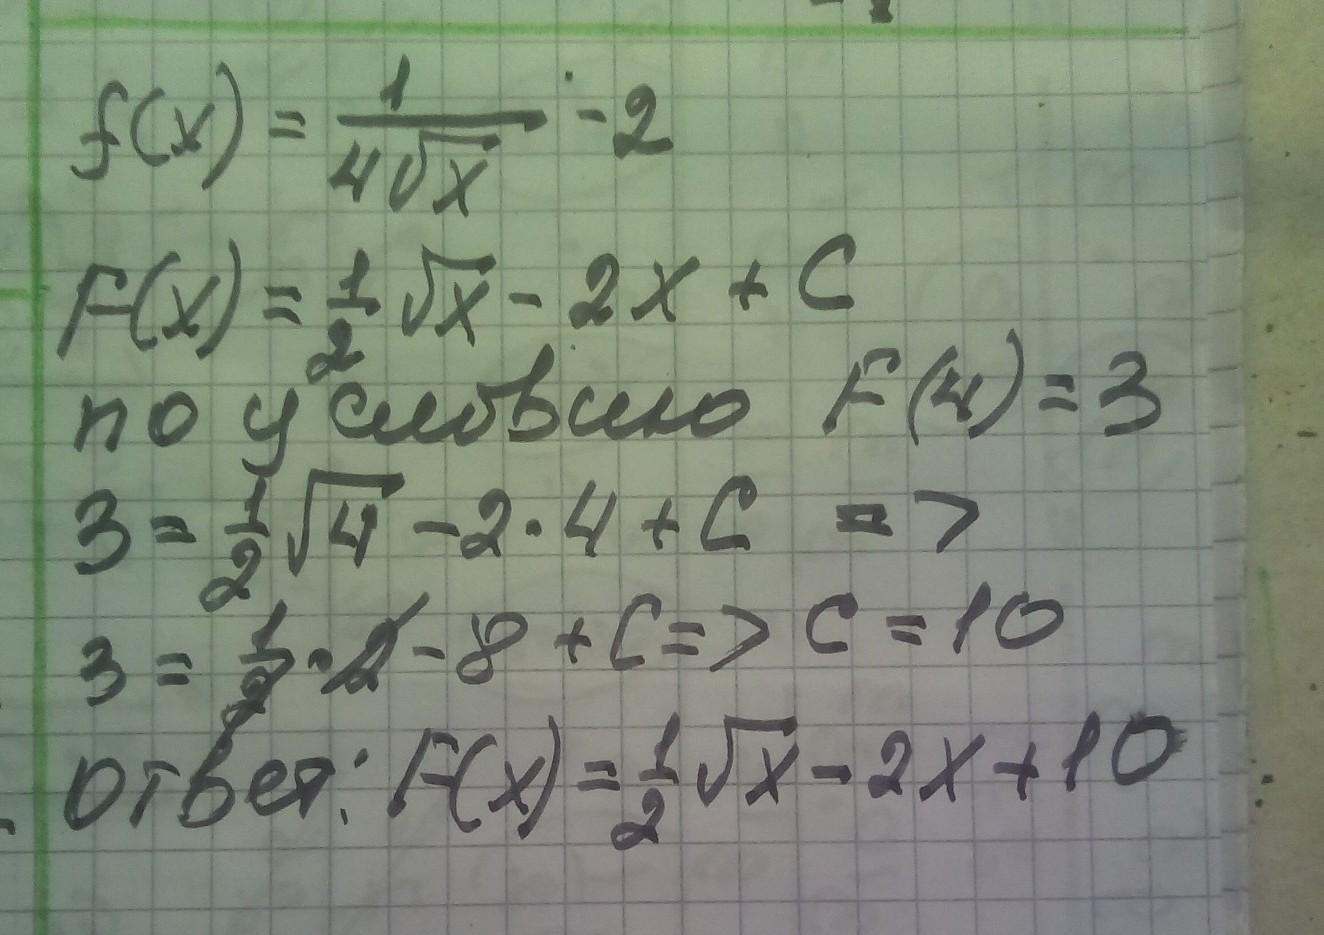 f(x) = 1/(4√x) - 2
F(x) = 1/2 √x - 2x + C
по условию F(4) = 3
3 = 1/2 √4 - 2·4 + C =>
3 = 1/2 · 2 - 8 + C => C = 10
Ответ: F(x) = 1/2 √x - 2x + 10